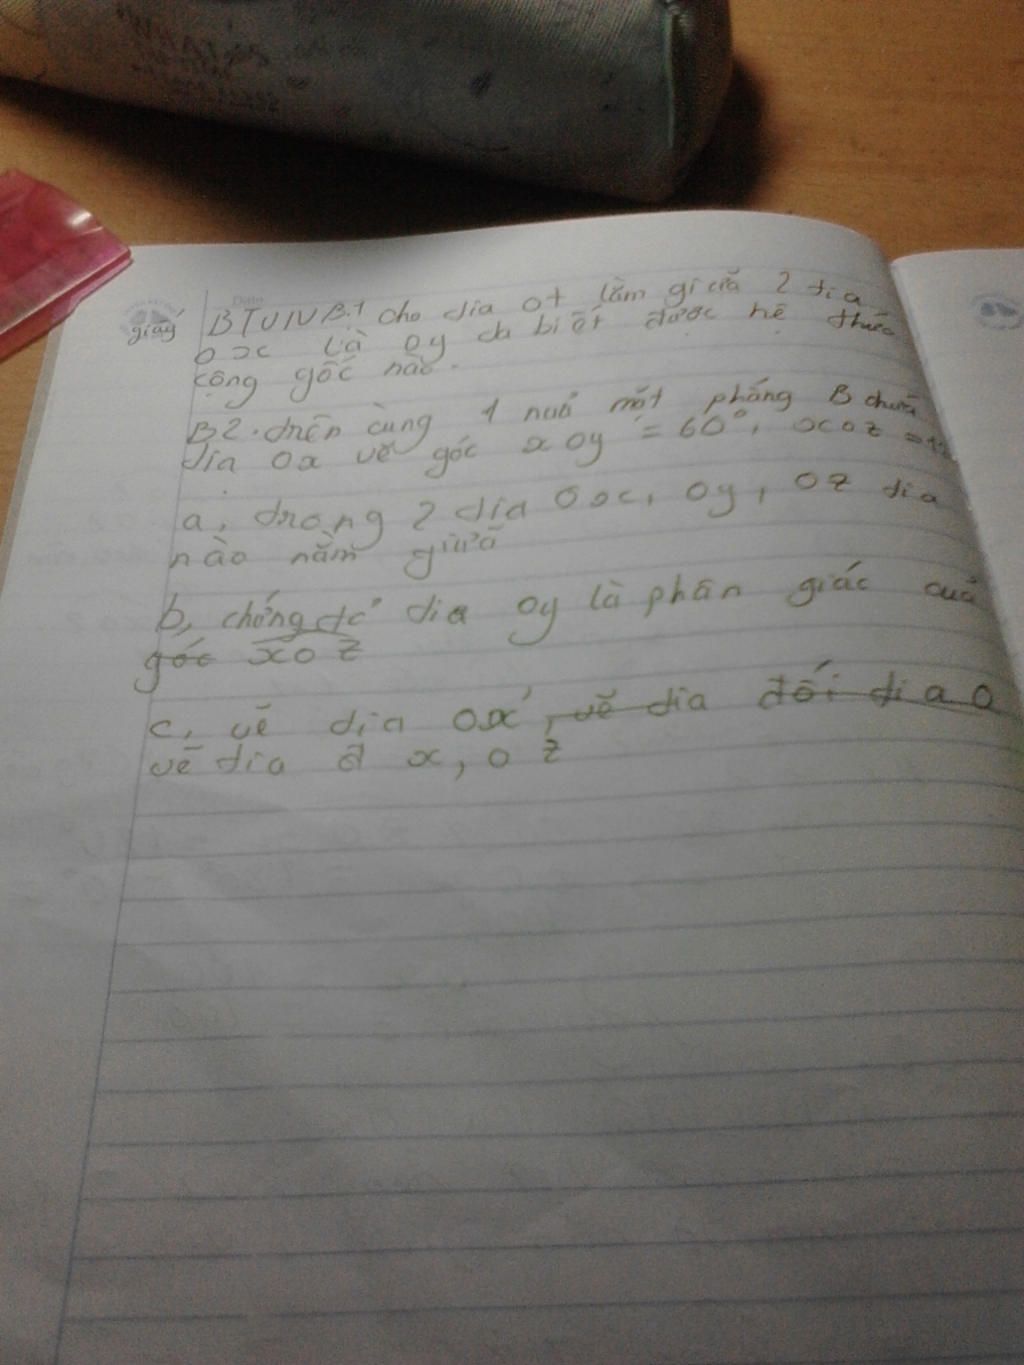 giấy
BTVN B.1 cho tia ot lằm giữa 2 tia
ox là oy ta biết được hệ thức
cộng gốc nào.
B2. trên cùng 1 nuả mặt phẳng B chứa
tia ox vẽ góc xoy = 60°, xoz =
a, trong 2 tia ox, oy, oz tia
nào nằm giữa
b, chứng tỏ tia oy là phân giác cuả
góc xoz
c, vẽ tia ox', vẽ tia đối tia o
vẽ tia đ x, o z